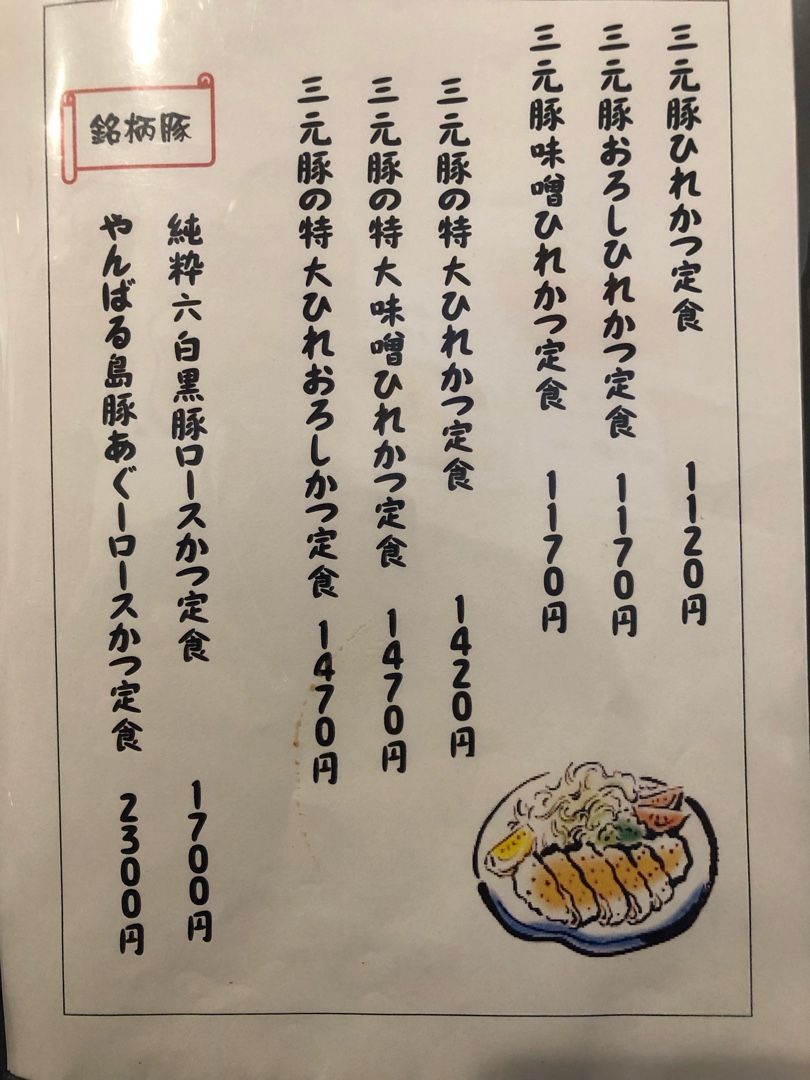 三元豚ひれかつ定食 1120円
三元豚おろしひれかつ定食 1170円
三元豚味噌ひれかつ定食 1170円
三元豚の特大ひれかつ定食 1420円
三元豚の特大味噌ひれかつ定食 1470円
三元豚の特大ひれおろしかつ定食 1470円
銘柄豚
純粋六白黒豚ロースかつ定食 1700円
やんばる島豚あぐーロースかつ定食 2300円